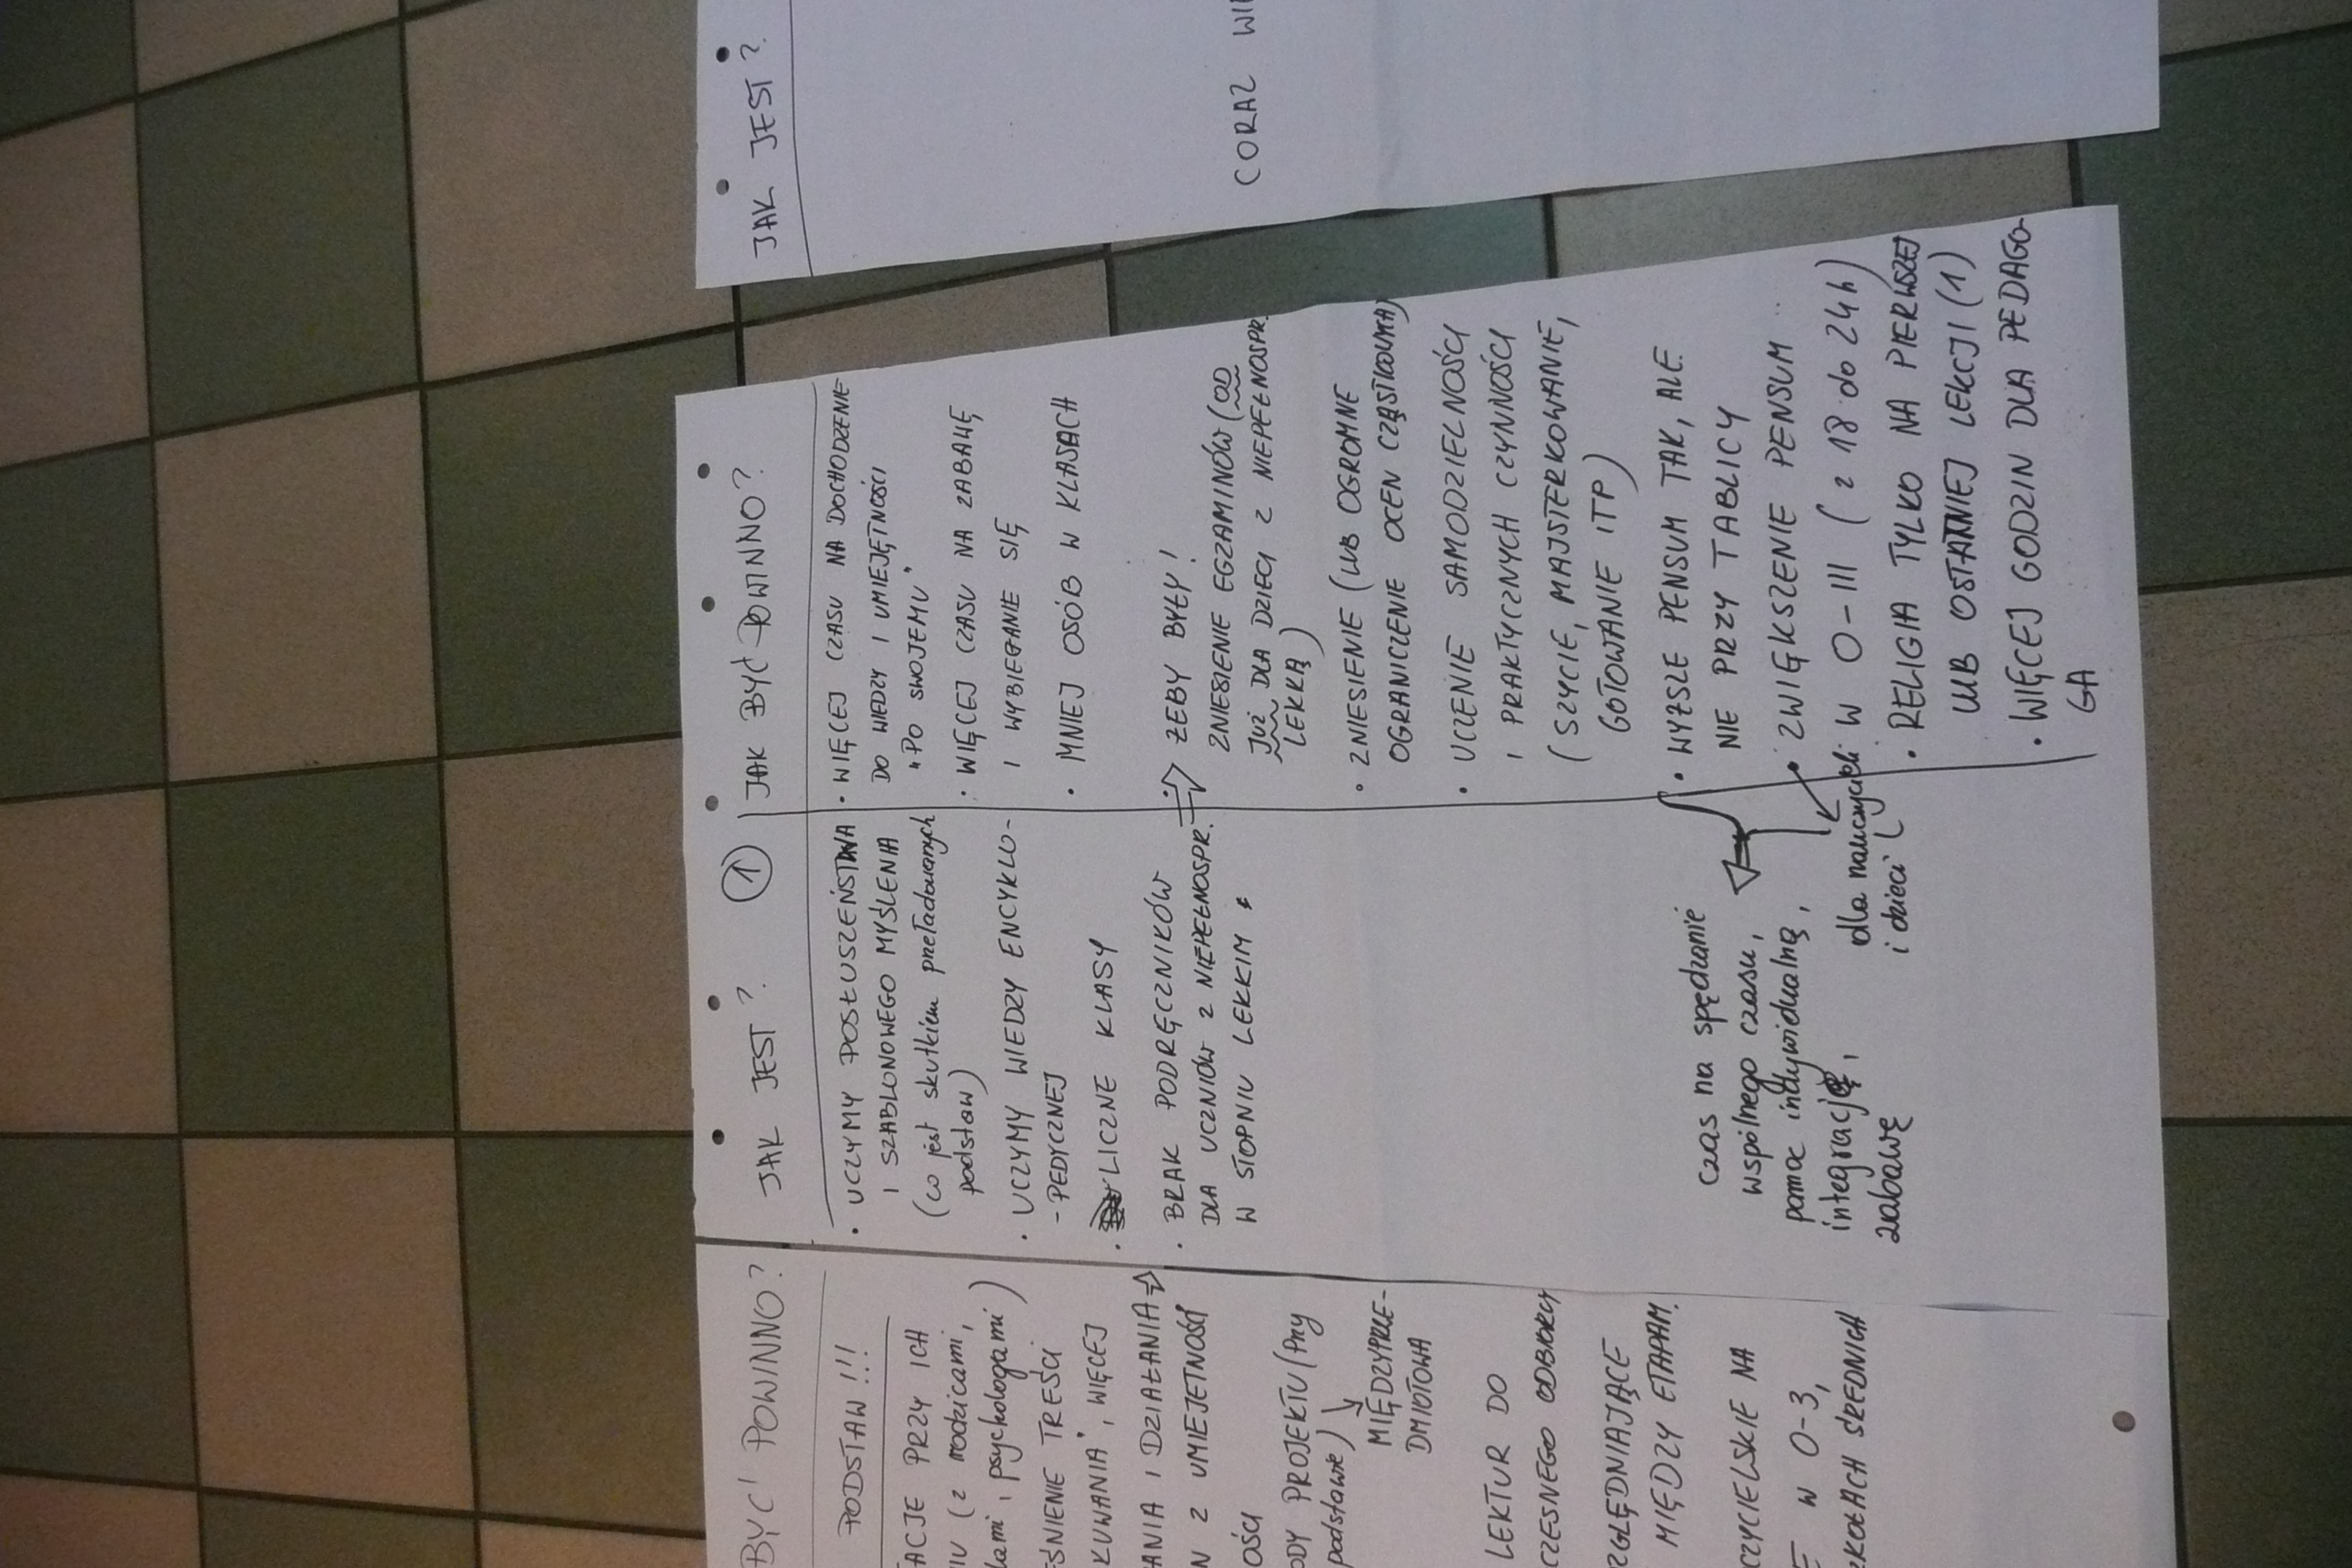 BYĆ POWINNO?
PODSTAW!!!
ACJE PRZY ICH
IU (z rodzicami,
lami i psychologami)
EŚNIENIE TREŚCI
KUWANIA", WIĘCEJ
ANIA I DZIAŁANIA
N Z UMIEJĘTNOŚCI
OŚCI
ODY PROJEKTU (Przy
podstawie)
MIĘDZYPRZE-
DMIOTOWA
LEKTUR DO
CZESNEGO ODBIORCY
ZGLĘDNIAJĄCE
MIĘDZY ETAPAM.
CZYCIELSKIE NA
W 0-3,
ZKOŁACH ŚREDNICH
JAK JEST?
①
• UCZYMY POSŁUSZEŃSTWA
I SZABLONOWEGO MYŚLENIA
(co jest skutkiem przeładowanych
podstaw)
• UCZYMY WIEDZY ENCYKLO-
-PEDYCZNEJ
• LICZNE KLASY
• BRAK PODRĘCZNIKÓW
DLA UCZNIÓW Z NIEPEŁNOSPR.
W STOPNIU LEKKIM
czas na spędzanie
wspólnego czasu,
pomoc indywidualną,
integrację,
zabawę
dla nauczycieli
i dzieci
JAK BYĆ POWINNO?
• WIĘCEJ CZASU NA DOCHODZENIE
DO WIEDZY I UMIEJĘTNOŚCI
"PO SWOJEMU"
• WIĘCEJ CZASU NA ZABAWĘ
I WYBIEGANIE SIĘ
• MNIEJ OSÓB W KLASACH
ŻEBY BYŁY!
ZNIESIENIE EGZAMINÓW (OD
JUŻ DLA DZIECI Z NIEPEŁNOSPR.
LEKKĄ)
• ZNIESIENIE (LUB OGROMNE
OGRANICZENIE OCEN CZĄSTKOWYCH)
• UCZENIE SAMODZIELNOŚCI
I PRAKTYCZNYCH CZYNNOŚCI
(SZYCIE, MAJSTERKOWANIE,
GOTOWANIE ITP)
• WYŻSZE PENSUM TAK, ALE
NIE PRZY TABLICY
• ZWIĘKSZENIE PENSUM
W O-III (z 18 do 24h)
• RELIGIA TYLKO NA PIERWSZEJ
LUB OSTATNIEJ LEKCJI (1)
• WIĘCEJ GODZIN DLA PEDAGO-
GA
JAK JEST?
CORAZ WI